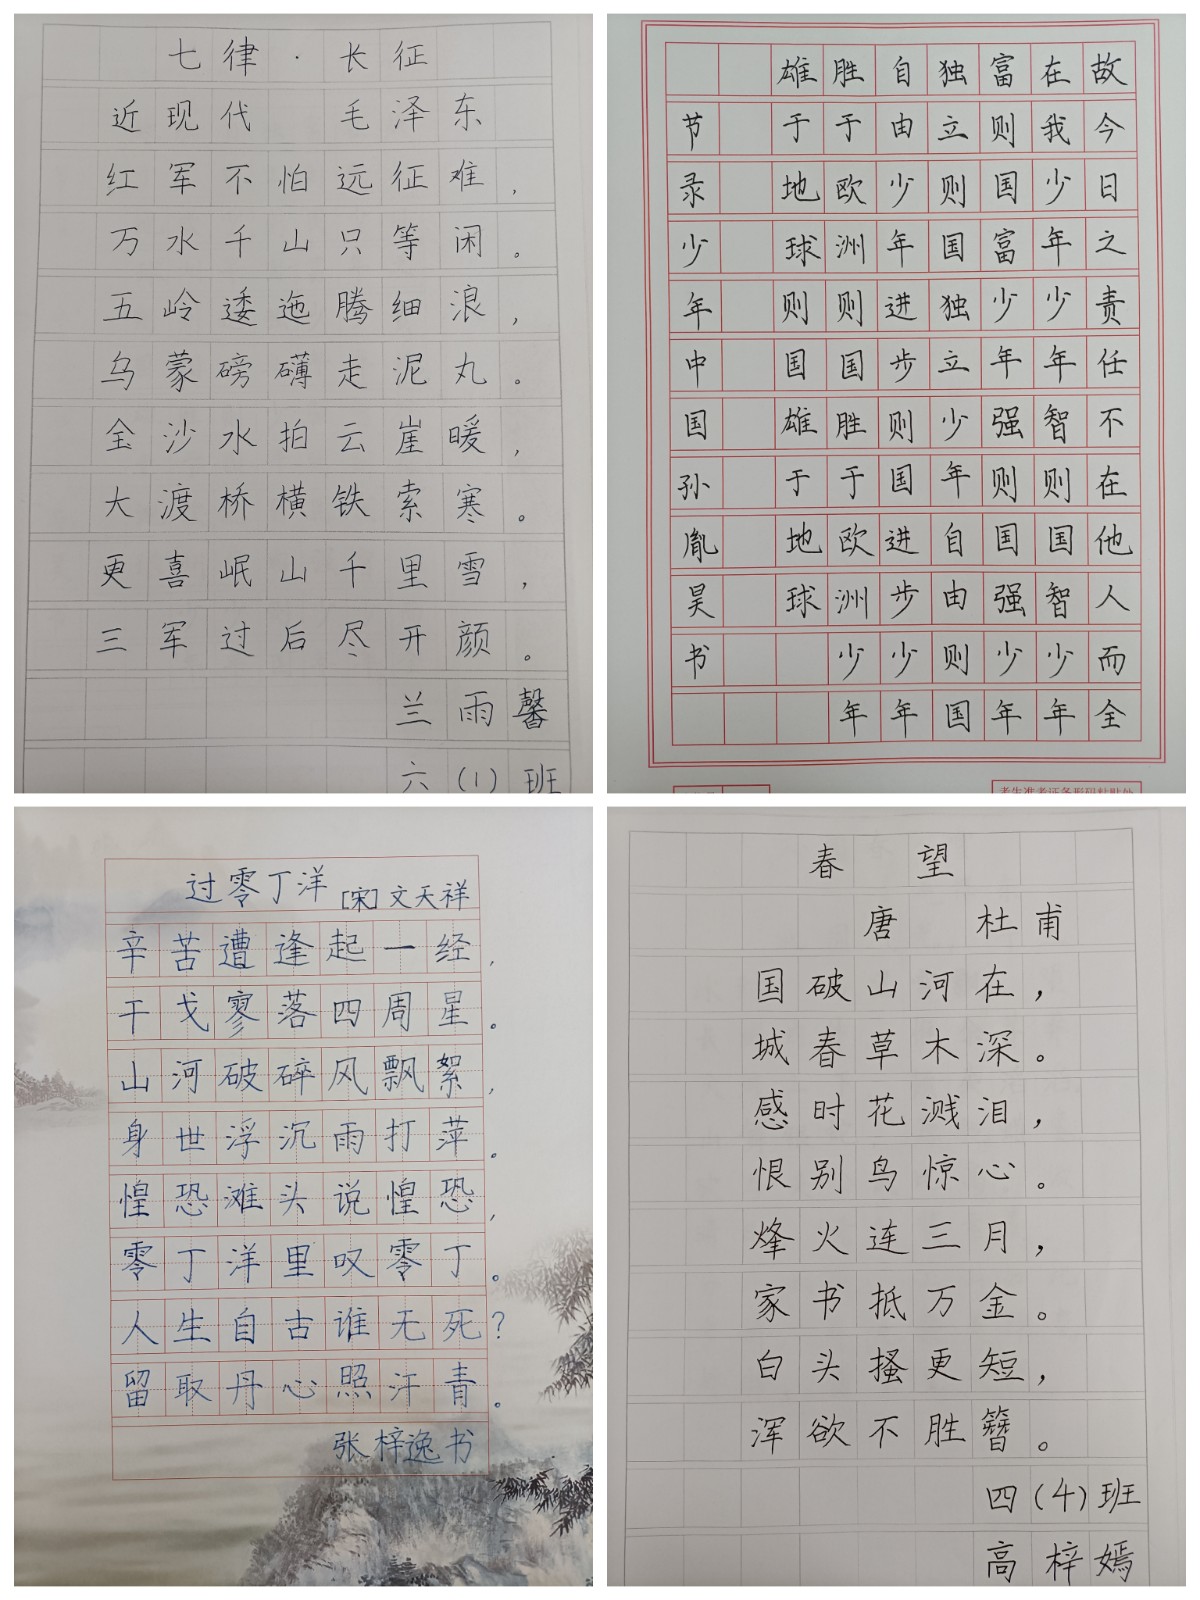 七律·长征
近现代 毛泽东
红军不怕远征难，
万水千山只等闲。
五岭逶迤腾细浪，
乌蒙磅礴走泥丸。
金沙水拍云崖暖，
大渡桥横铁索寒。
更喜岷山千里雪，
三军过后尽开颜。
兰雨馨
六(1)班
故今日之责任不在他人而全
在我少年少年智则国智少年
富则国富少年强则国强少年
独立则国独立少年自由则国
自由少年进步则国进步少年
胜于欧洲则国胜于欧洲少年
雄于地球则国雄于地球
节录少年中国孙胤昊书
过零丁洋 [宋]文天祥
辛苦遭逢起一经，
干戈寥落四周星。
山河破碎风飘絮，
身世浮沉雨打萍。
惶恐滩头说惶恐，
零丁洋里叹零丁。
人生自古谁无死？
留取丹心照汗青。
张梓逸书
春望
唐 杜甫
国破山河在，
城春草木深。
感时花溅泪，
恨别鸟惊心。
烽火连三月，
家书抵万金。
白头搔更短，
浑欲不胜簪。
四(4)班
高梓嫣